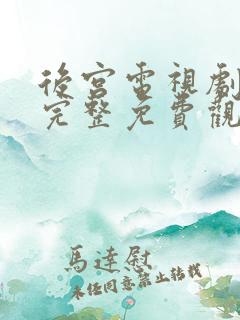 後宮電視劇
完整免費觀
馬達慰
未經同意禁止轉載